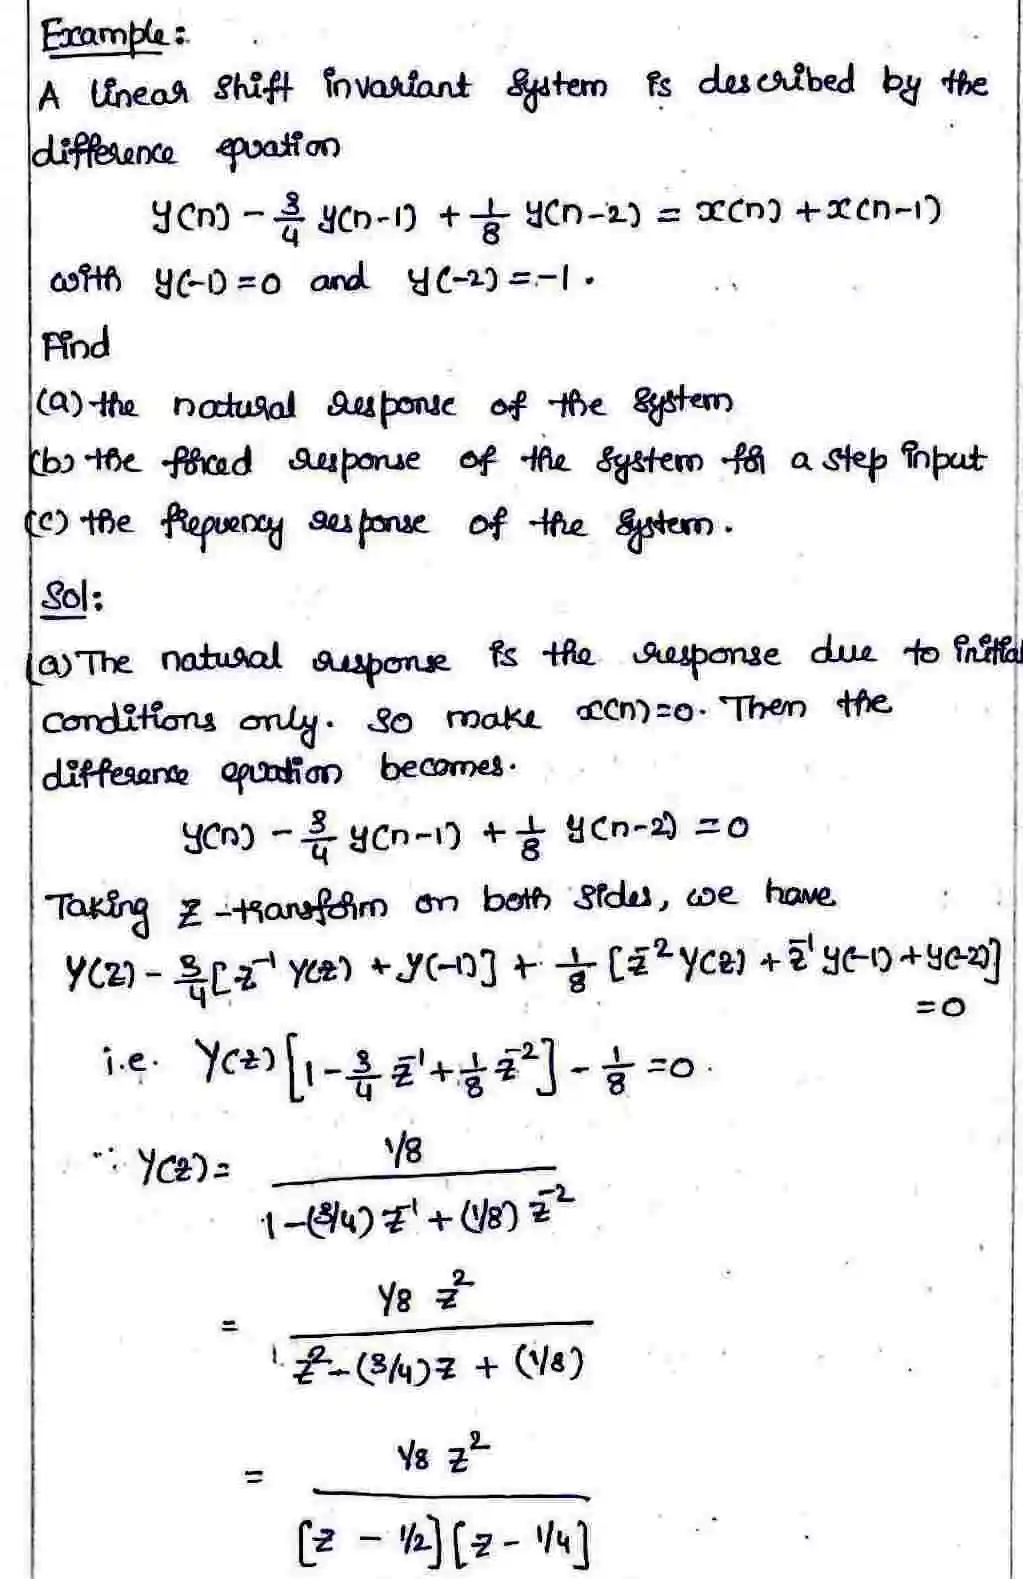 Example:
A linear shift invariant system is described by the
difference equation
y(n) - 3/4 y(n-1) + 1/8 y(n-2) = x(n) + x(n-1)
with y(-1) = 0 and y(-2) = -1.
Find
(a) the natural response of the system
(b) the forced response of the system for a step input
(c) the frequency response of the system.
Sol:
(a) The natural response is the response due to initial
conditions only. So make x(n)=0. Then the
difference equation becomes.
y(n) - 3/4 y(n-1) + 1/8 y(n-2) = 0
Taking z-transform on both sides, we have
Y(z) - 3/4 [z⁻¹ Y(z) + y(-1)] + 1/8 [z⁻² Y(z) + z⁻¹ y(-1) + y(-2)]
= 0
i.e. Y(z) [1 - 3/4 z⁻¹ + 1/8 z⁻²] - 1/8 = 0.
∴ Y(z) = 1/8 / 1-(3/4) z⁻¹ + (1/8) z⁻²
= 1/8 z² / z² - (3/4) z + (1/8)
= 1/8 z² / [z - 1/2] [z - 1/4]